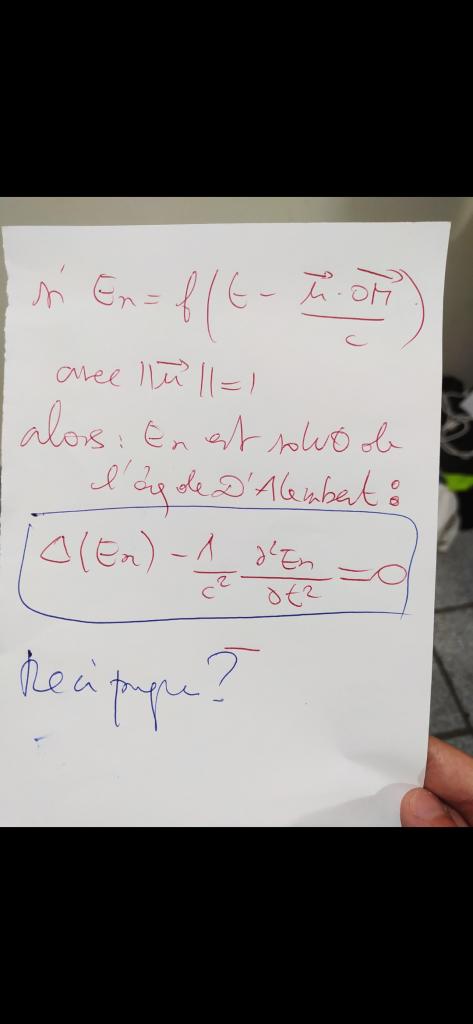 si Ex = f(t - u⃗ · OM⃗ / c)
avec ||u⃗|| = 1
alors : Ex est solut° de
l'éq de D'Alembert :
Δ(Ex) - 1/c² ∂²Ex/∂t² = 0
Réciproque ?